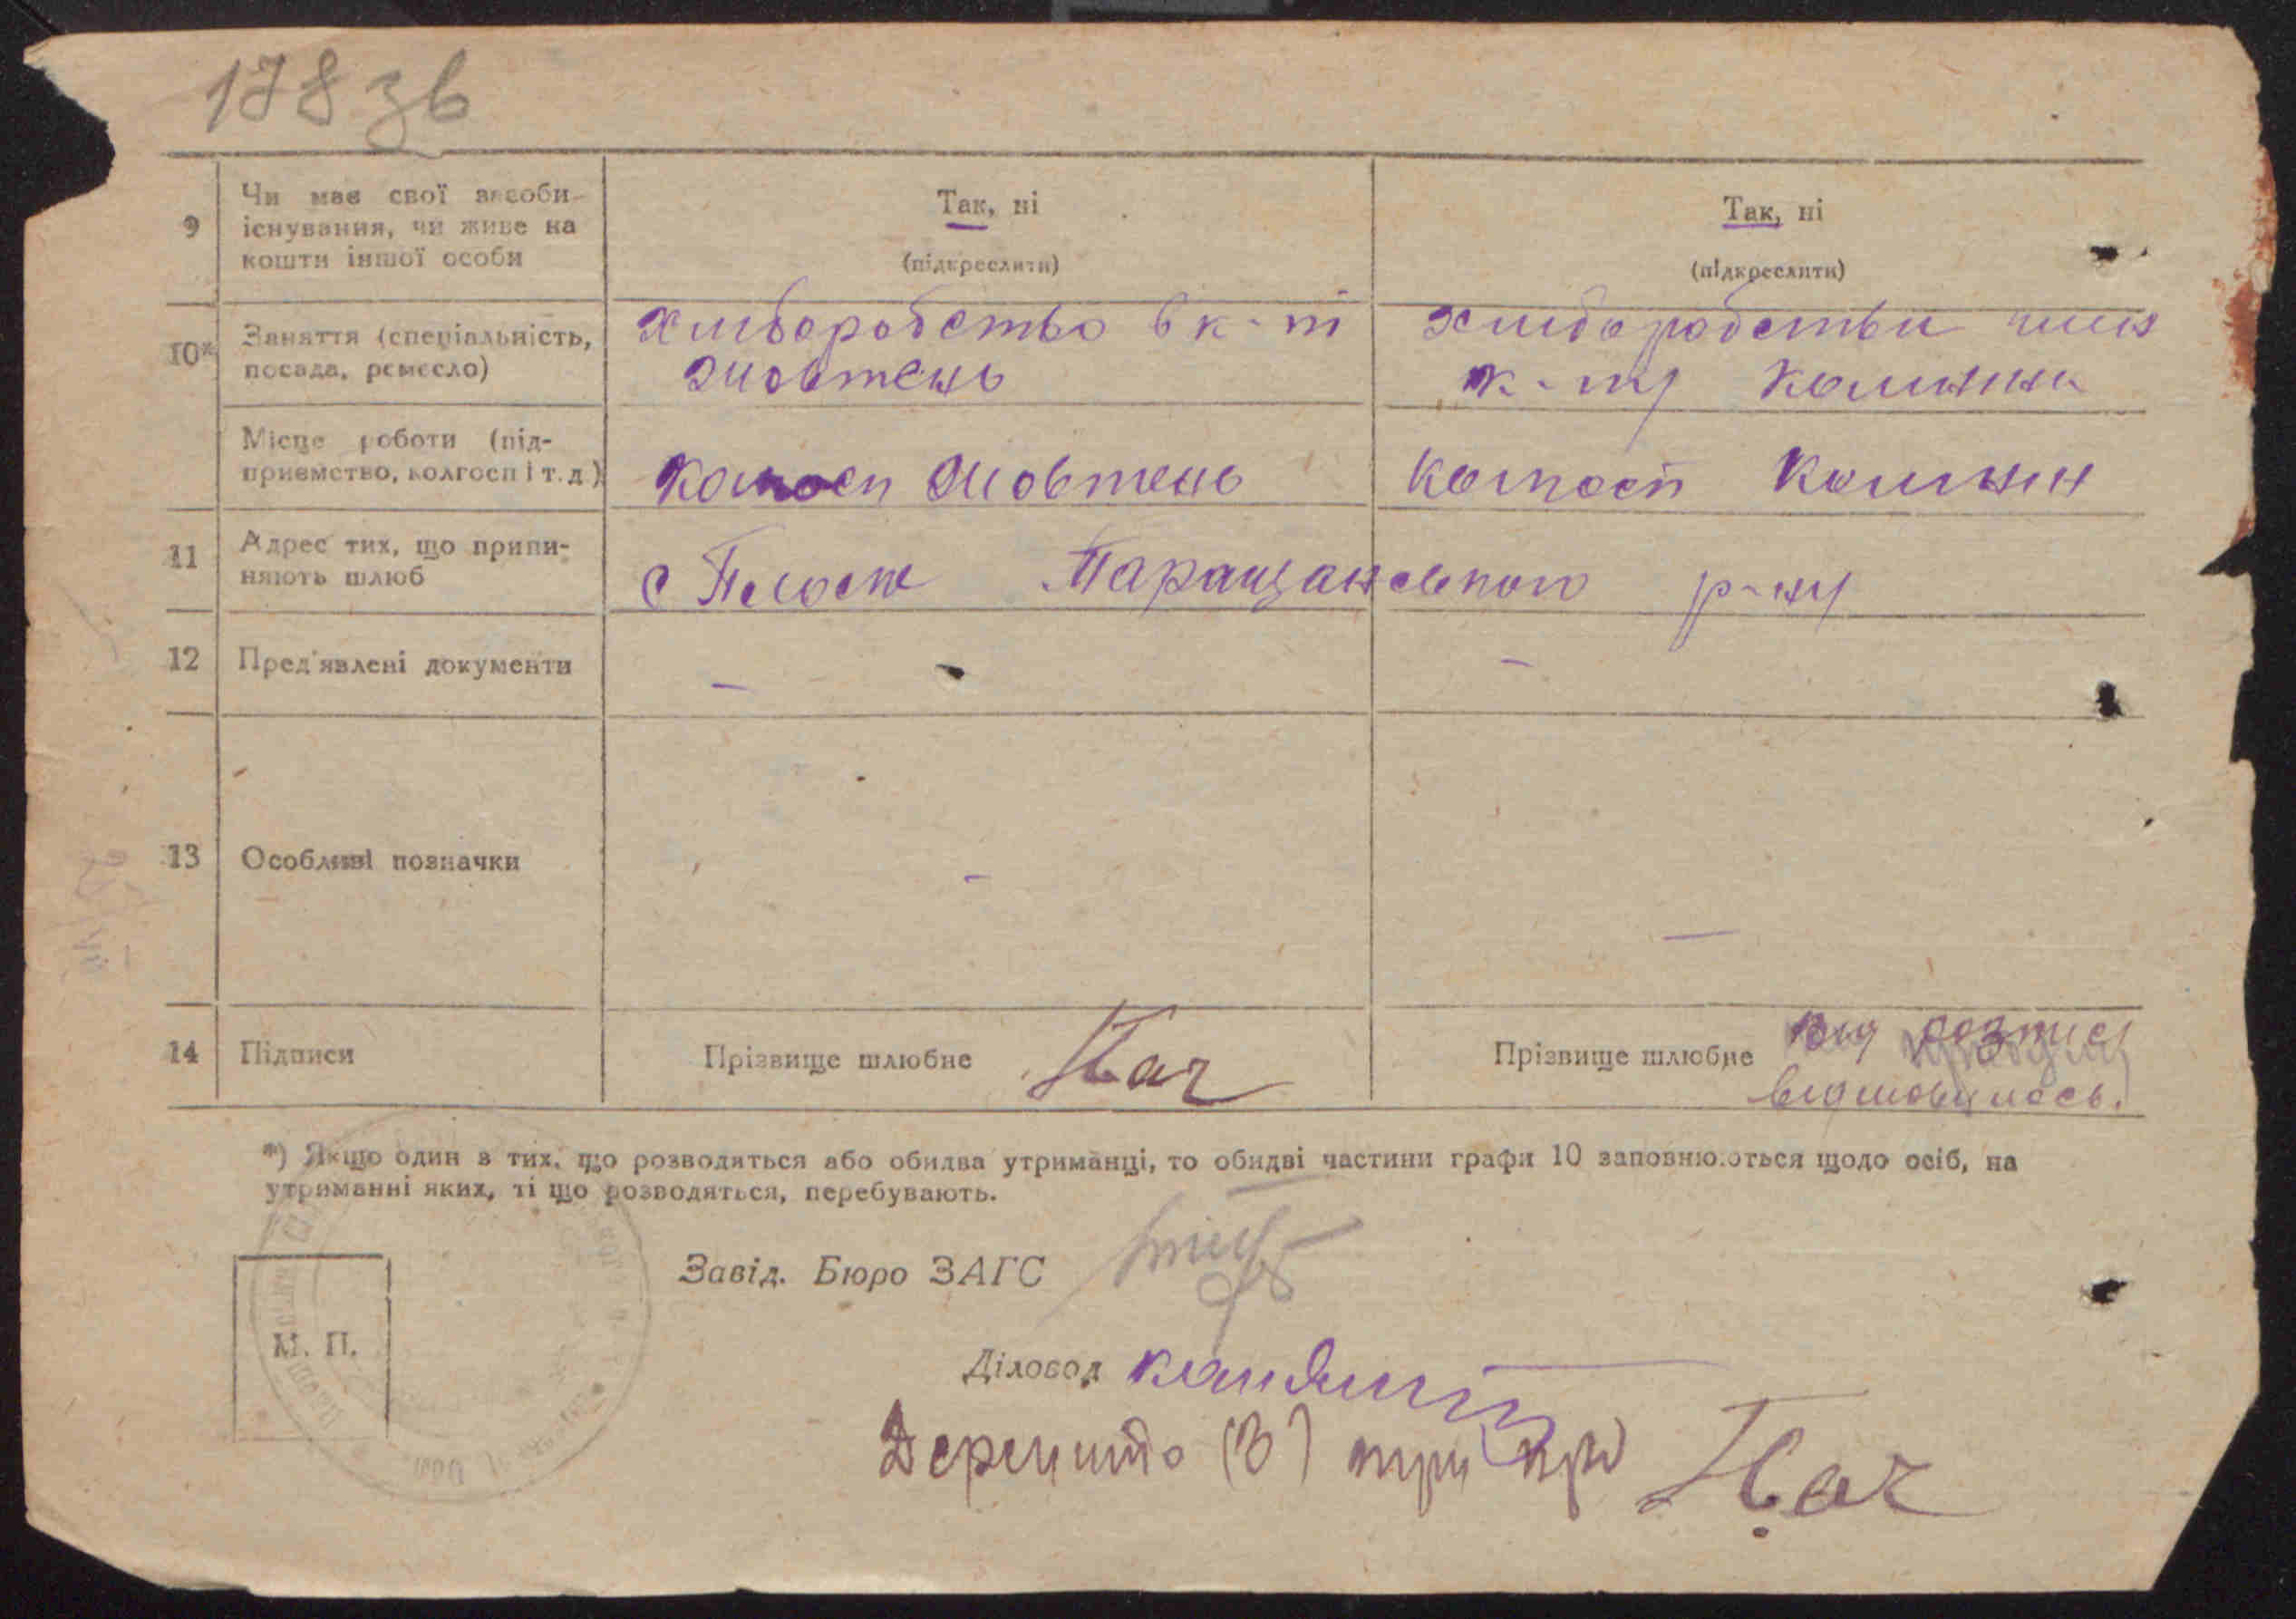 178 зв
9
Чи має свої засоби
існування, чи живе на
кошти іншої особи
Так, ні
(підкреслити)
Так, ні
(підкреслити)
10*
Заняття (спеціальність,
посада, ремесло)
хліборобство в к-ті
жовтень
хліборобство член
к-ту Калініна
Місце роботи (під-
приємство, колгосп і т. д.)
Колгосп Жовтень
Колгосп Калінін
11
Адрес тих, що припи-
няють шлюб
с Плоске Таращанського р-ну
12
Пред'явлені документи
-
-
13
Особливі позначки
-
-
14
Підписи
Прізвище шлюбне
Прізвище шлюбне
Від розпис
відмовилась.
*) Якщо один з тих, що розводяться або обидва утриманці, то обидві частини графи 10 заповнюються щодо осіб, на
утриманні яких, ті що розводяться, перебувають.
М. П.
Завід. Бюро ЗАГС
Діловод
(3) три